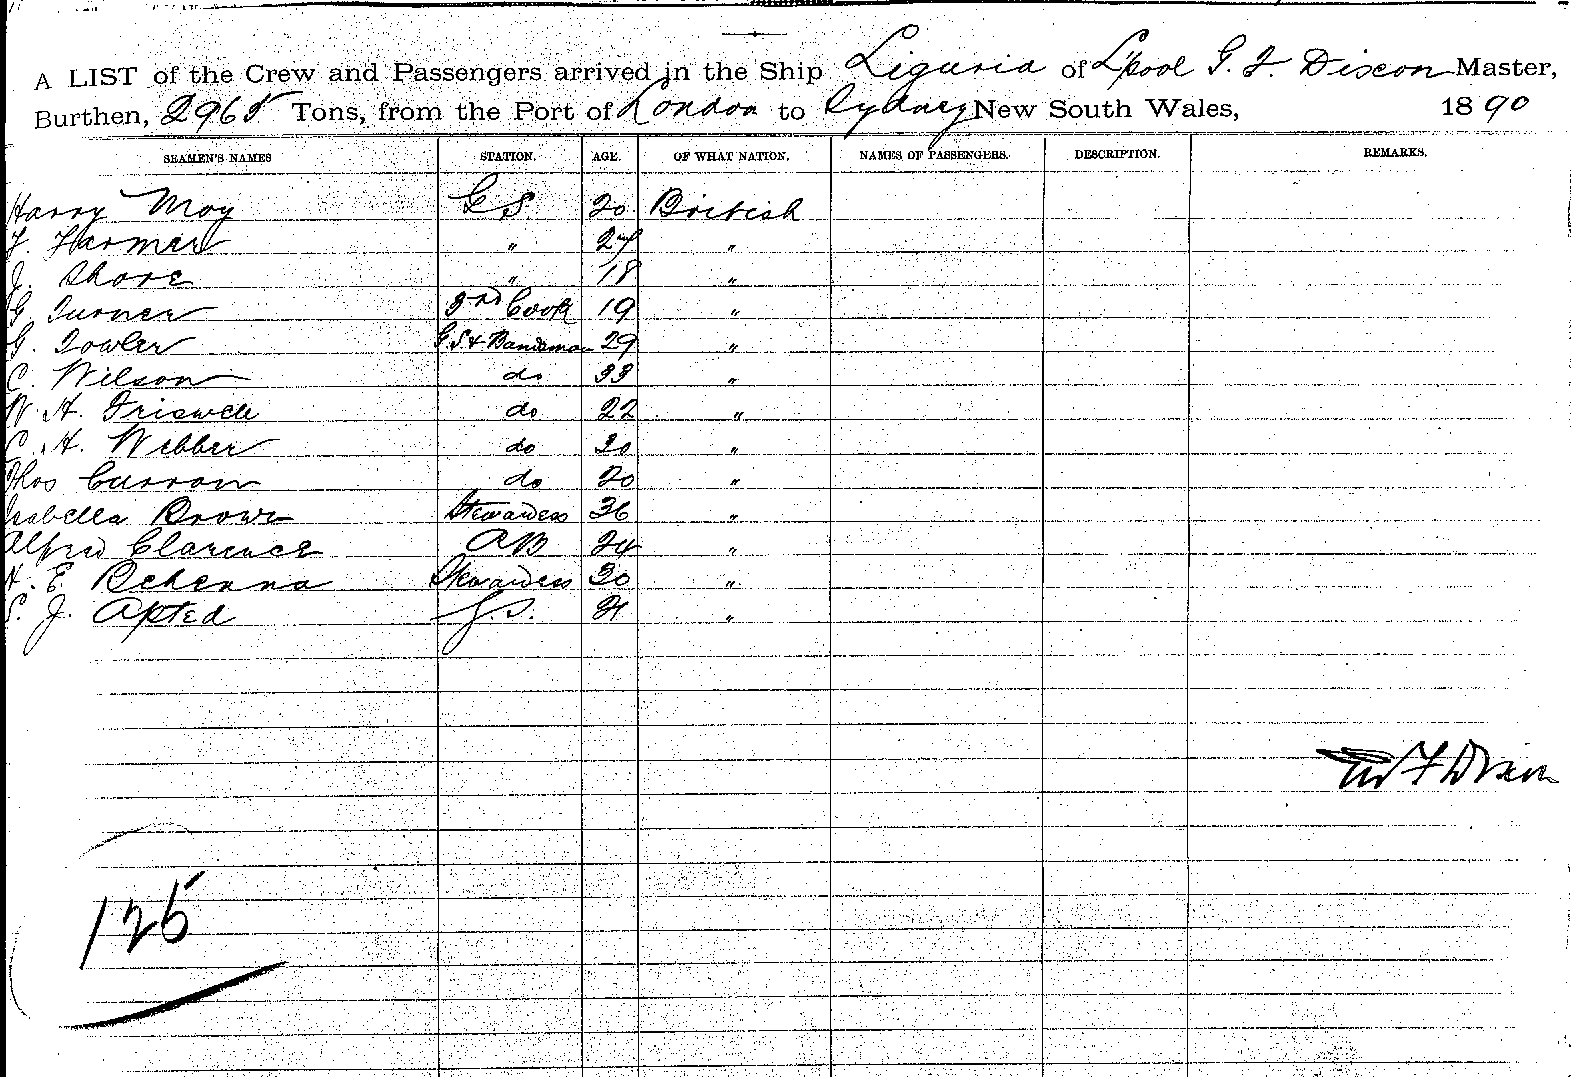 A LIST of the Crew and Passengers arrived in the Ship Liguria of L'pool G. F. Dixon Master,
Burthen, 2965 Tons, from the Port of London to Sydney New South Wales, 1890
SEAMEN'S NAMES STATION. AGE. OF WHAT NATION. NAMES OF PASSENGERS. DESCRIPTION. REMARKS.
Harry Moy GS 20 British
F. Farmer " 27 "
J. Shore " 18 "
G. Turner 3rd Cook 19 "
G. Towler G.S & Bandsman 29 "
C. Wilson do 33 "
W. A. Friswell do 22 "
C. A. Webber do 20 "
Thos Curran do 20 "
Isabella Brown Stewardess 36 "
Alfred Clarence AB 24 "
A. E. Rehenna Stewardess 30 "
S. J. Apted G.S. 21 "
F Dixon
125